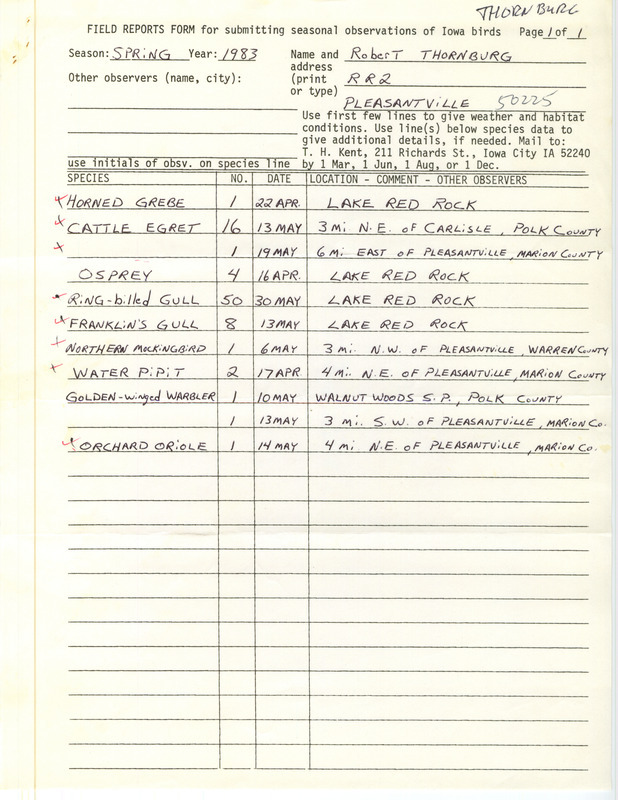 THORNBURG
FIELD REPORTS FORM for submitting seasonal observations of Iowa birds Page 1 of 1
Season: SPRING Year: 1983 Name and Robert THORNBURG
address
Other observers (name, city): (print RR2
or type)
PLEASANTVILLE 50225
Use first few lines to give weather and habitat
conditions. Use line(s) below species data to
give additional details, if needed. Mail to:
T. H. Kent, 211 Richards St., Iowa City IA 52240
use initials of obsv. on species line by 1 Mar, 1 Jun, 1 Aug, or 1 Dec.
SPECIES NO. DATE LOCATION - COMMENT - OTHER OBSERVERS
x HORNED GREBE 1 22 APR. LAKE RED ROCK
x CATTLE EGRET 16 13 MAY 3 mi N.E. OF CARLISLE, POLK COUNTY
x 1 19 MAY 6 mi EAST OF PLEASANTVILLE, MARION COUNTY
OSPREY 4 16 APR. LAKE RED ROCK
x RING-billed GULL 50 30 MAY LAKE RED ROCK
x FRANKLIN'S GULL 8 13 MAY LAKE RED ROCK
x NORTHERN MOCKINGBIRD 1 6 MAY 3 mi. N.W. OF PLEASANTVILLE, WARREN COUNTY
x WATER PIPIT 2 17 APR 4 mi. N.E. OF PLEASANTVILLE, MARION COUNTY
GOLDEN-winged WARBLER 1 10 MAY WALNUT WOODS S.P., POLK COUNTY
1 13 MAY 3 mi. S.W. OF PLEASANTVILLE, MARION CO.
x ORCHARD ORIOLE 1 14 MAY 4 mi. N.E. OF PLEASANTVILLE, MARION CO.